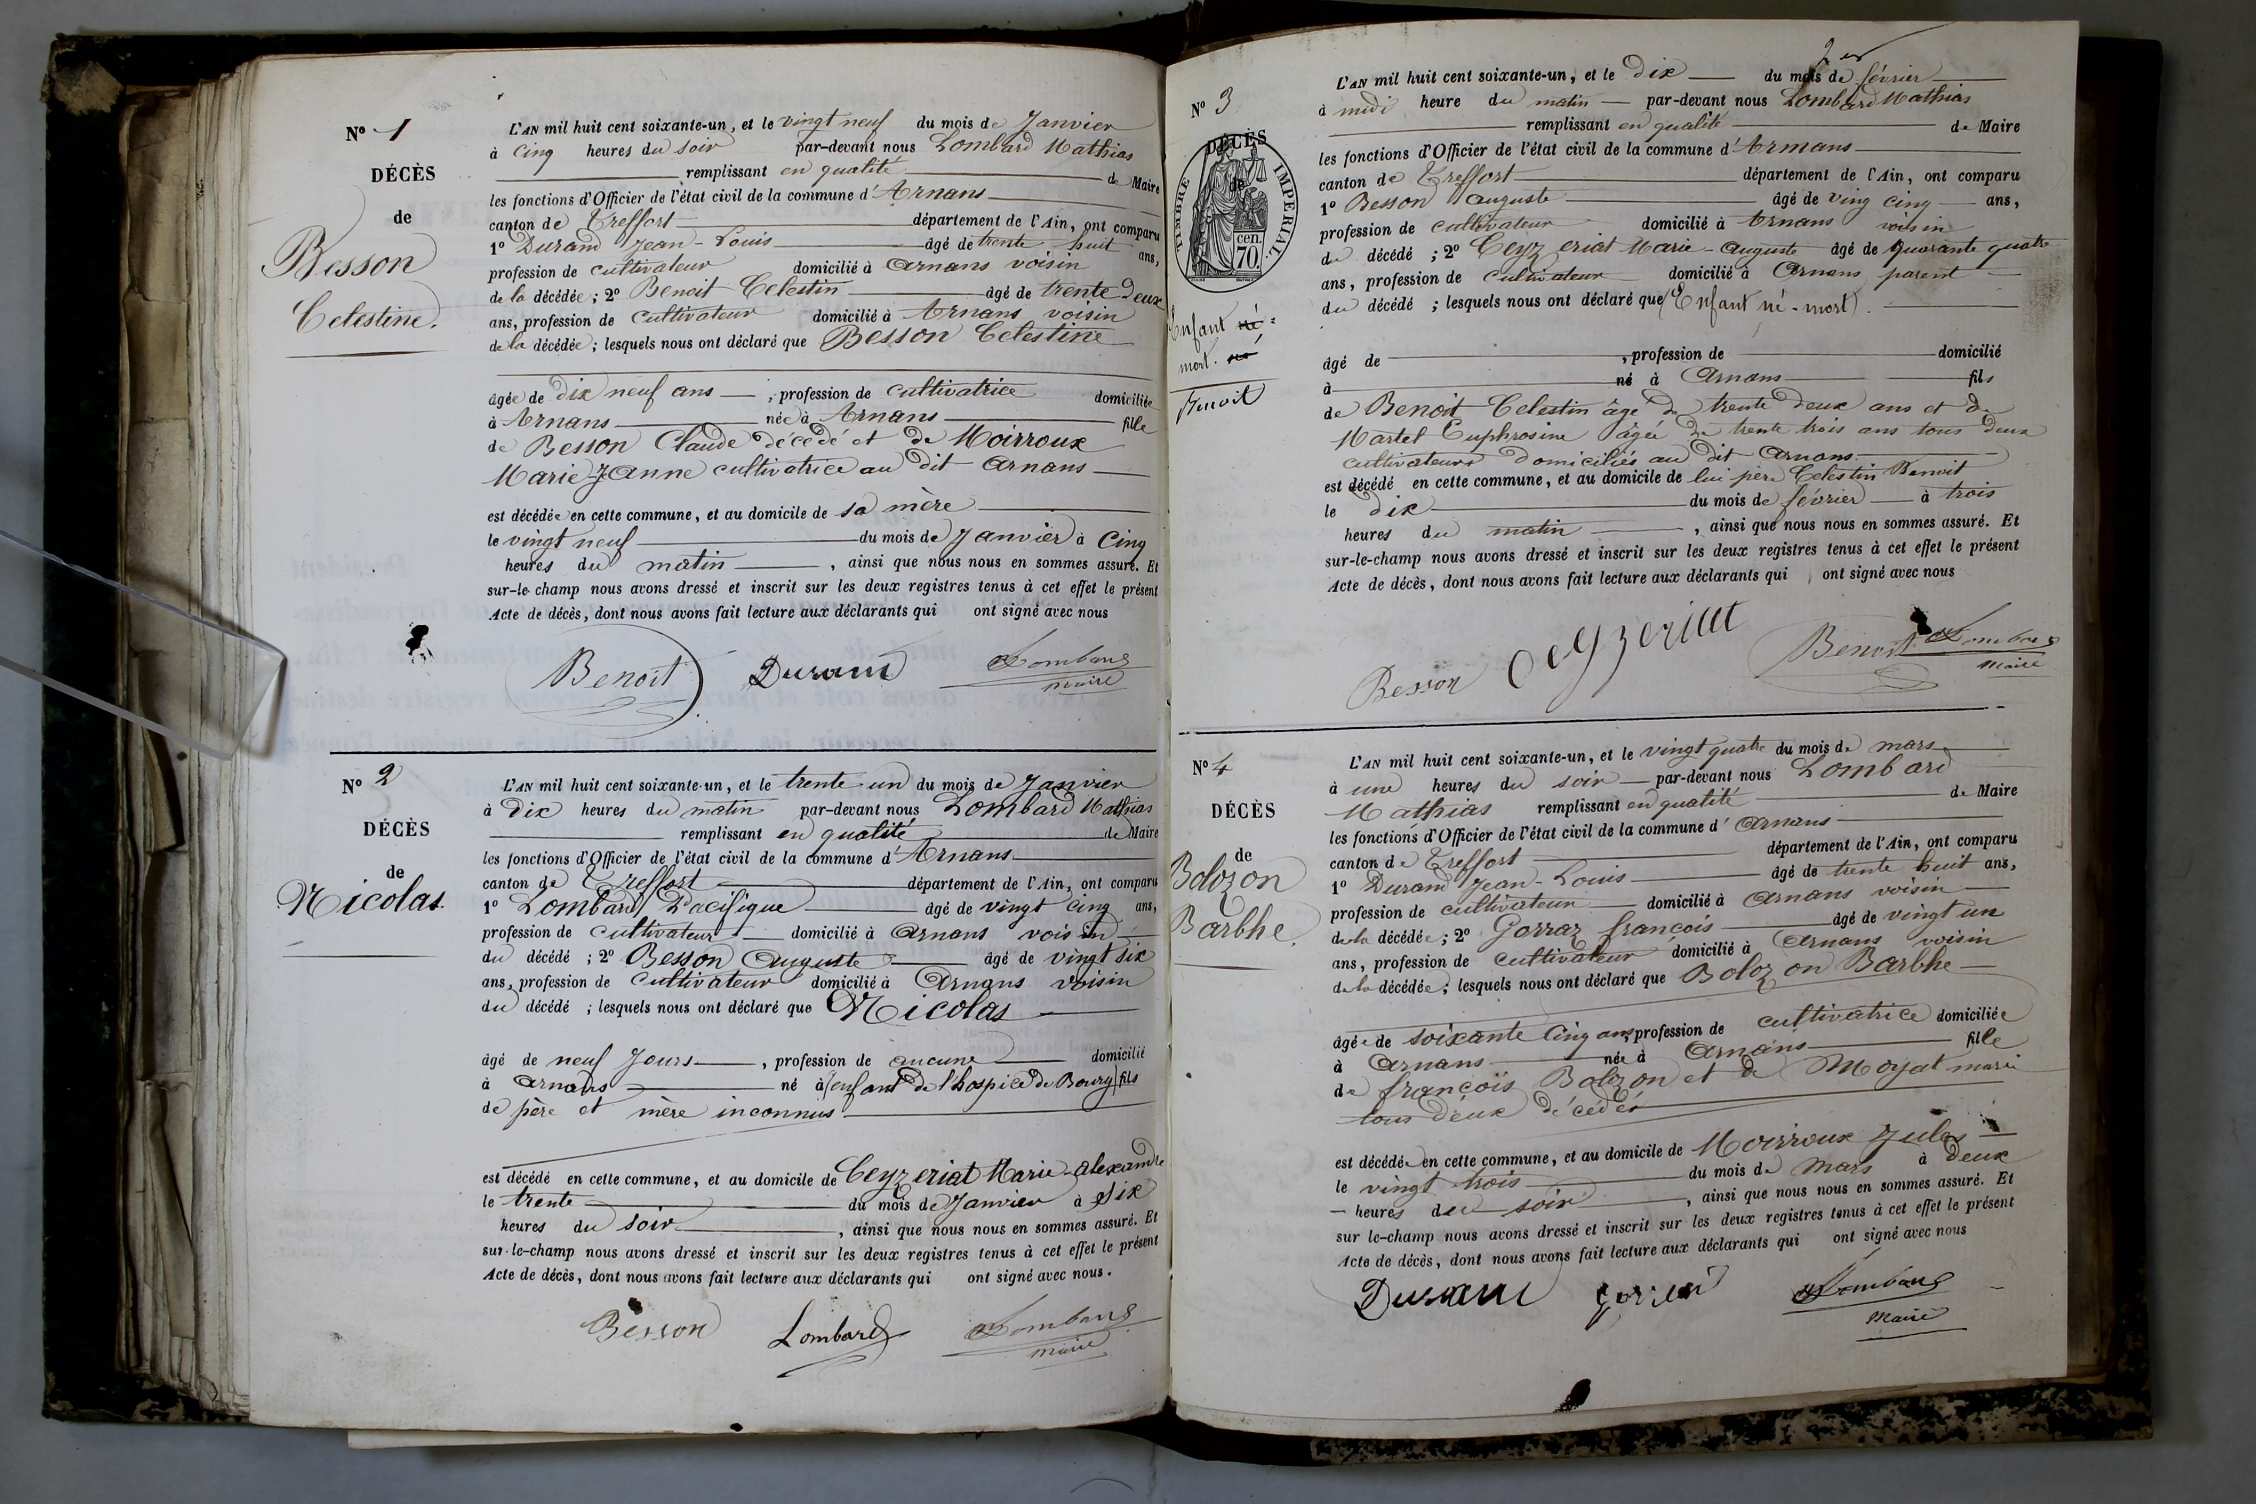 Nº 1
DÉCÈS
de
Besson
Celestine.
L'AN mil huit cent soixante-un, et le vingt neuf du mois de Janvier
à cinq heures du soir par-devant nous Lombard Mathias
remplissant en qualité de Maire
les fonctions d'Officier de l'état civil de la commune d'Arnans
canton de Treffort département de l'Ain, ont comparu
1º Durand Jean-Louis âgé de trente huit ans,
profession de cultivateur domicilié à Arnans voisin
de la décédée; 2º Benoit Celestin âgé de trente deux
ans, profession de cultivateur domicilié à Arnans voisin
de la décédée; lesquels nous ont déclaré que Besson Celestine
âgée de dix neuf ans, profession de cultivatrice domiciliée
à Arnans née à Arnans fille
de Besson Claude décédé et de Moirroux
Marie-Janne cultivatrice au dit Arnans
est décédée en cette commune, et au domicile de sa mère
le vingt neuf du mois de Janvier à cinq
heures du matin, ainsi que nous nous en sommes assuré. Et
sur-le-champ nous avons dressé et inscrit sur les deux registres tenus à cet effet le présent
Acte de décès, dont nous avons fait lecture aux déclarants qui ont signé avec nous
Benoit Durand Lombard
maire
Nº 2
DÉCÈS
de
Nicolas
L'AN mil huit cent soixante-un, et le trente un du mois de Janvier
à dix heures du matin par-devant nous Lombard Mathias
remplissant en qualité de Maire
les fonctions d'Officier de l'état civil de la commune d'Arnans
canton de Treffort département de l'Ain, ont comparu
1º Lombard Pacifique âgé de vingt cinq ans,
profession de cultivateur domicilié à Arnans voisin
du décédé; 2º Besson Auguste âgé de vingt six
ans, profession de cultivateur domicilié à Arnans voisin
du décédé; lesquels nous ont déclaré que Nicolas
âgé de neuf Jours, profession de aucune domicilié
à Arnans né à (enfant de l'hospice de Bourg) fils
de père et mère inconnus
est décédé en cette commune, et au domicile de Ceyzeriat Marie-Alexandre
le trente du mois de Janvier à six
heures du soir, ainsi que nous nous en sommes assuré. Et
sur-le-champ nous avons dressé et inscrit sur les deux registres tenus à cet effet le présent
Acte de décès, dont nous avons fait lecture aux déclarants qui ont signé avec nous.
Besson Lombard Lombard
maire
Nº 3
DÉCÈS
de
TIMBRE IMPÉRIAL.
70 cen.
Enfant né-
mort. né
Benoit
L'AN mil huit cent soixante-un, et le dix du mois de février
à midi heure du matin par-devant nous Lombard Mathias
remplissant en qualité de Maire
les fonctions d'Officier de l'état civil de la commune d'Arnans
canton de Treffort département de l'Ain, ont comparu
1º Besson Auguste âgé de ving cinq ans,
profession de cultivateur domicilié à Arnans voisin
du décédé; 2º Ceyzeriat Marie-Auguste âgé de quarante quatre
ans, profession de cultivateur domicilié à Arnans parent
du décédé; lesquels nous ont déclaré que (Enfant né-mort).
âgé de , profession de domicilié
à né à Arnans fils
de Benoit Celestin âgé de trente deux ans et de
Martel Euphrosine âgée de trente trois ans tous deux
cultivateurs domiciliés au dit Arnans
est décédé en cette commune, et au domicile de lui père Celestin Benoit
le dix du mois de février à trois
heures du matin, ainsi que nous nous en sommes assuré. Et
sur-le-champ nous avons dressé et inscrit sur les deux registres tenus à cet effet le présent
Acte de décès, dont nous avons fait lecture aux déclarants qui ont signé avec nous
Besson Ceyzeriat Benoit Lombard
maire
Nº 4
DÉCÈS
de
Bolozon
Barbhe.
L'AN mil huit cent soixante-un, et le vingt quatre du mois de mars
à une heures du soir par-devant nous Lombard
Mathias remplissant en qualité de Maire
les fonctions d'Officier de l'état civil de la commune d'Arnans
canton de Treffort département de l'Ain, ont comparu
1º Durand Jean-Louis âgé de trente huit ans,
profession de cultivateur domicilié à Arnans voisin
de la décédée; 2º Gorraz françois âgé de vingt un
ans, profession de cultivateur domicilié à Arnans voisin
de la décédée; lesquels nous ont déclaré que Bolozon Barbhe
âgée de soixante cinq ans, profession de cultivatrice domiciliée
à Arnans née à Arnans fille
de françois Bolozon et de Moyat marie
tous deux décédés
est décédée en cette commune, et au domicile de Moirroux Jules
le vingt trois du mois de mars à deux
heures du soir, ainsi que nous nous en sommes assuré. Et
sur le-champ nous avons dressé et inscrit sur les deux registres tenus à cet effet le présent
Acte de décès, dont nous avons fait lecture aux déclarants qui ont signé avec nous
Durand Lombard
maire